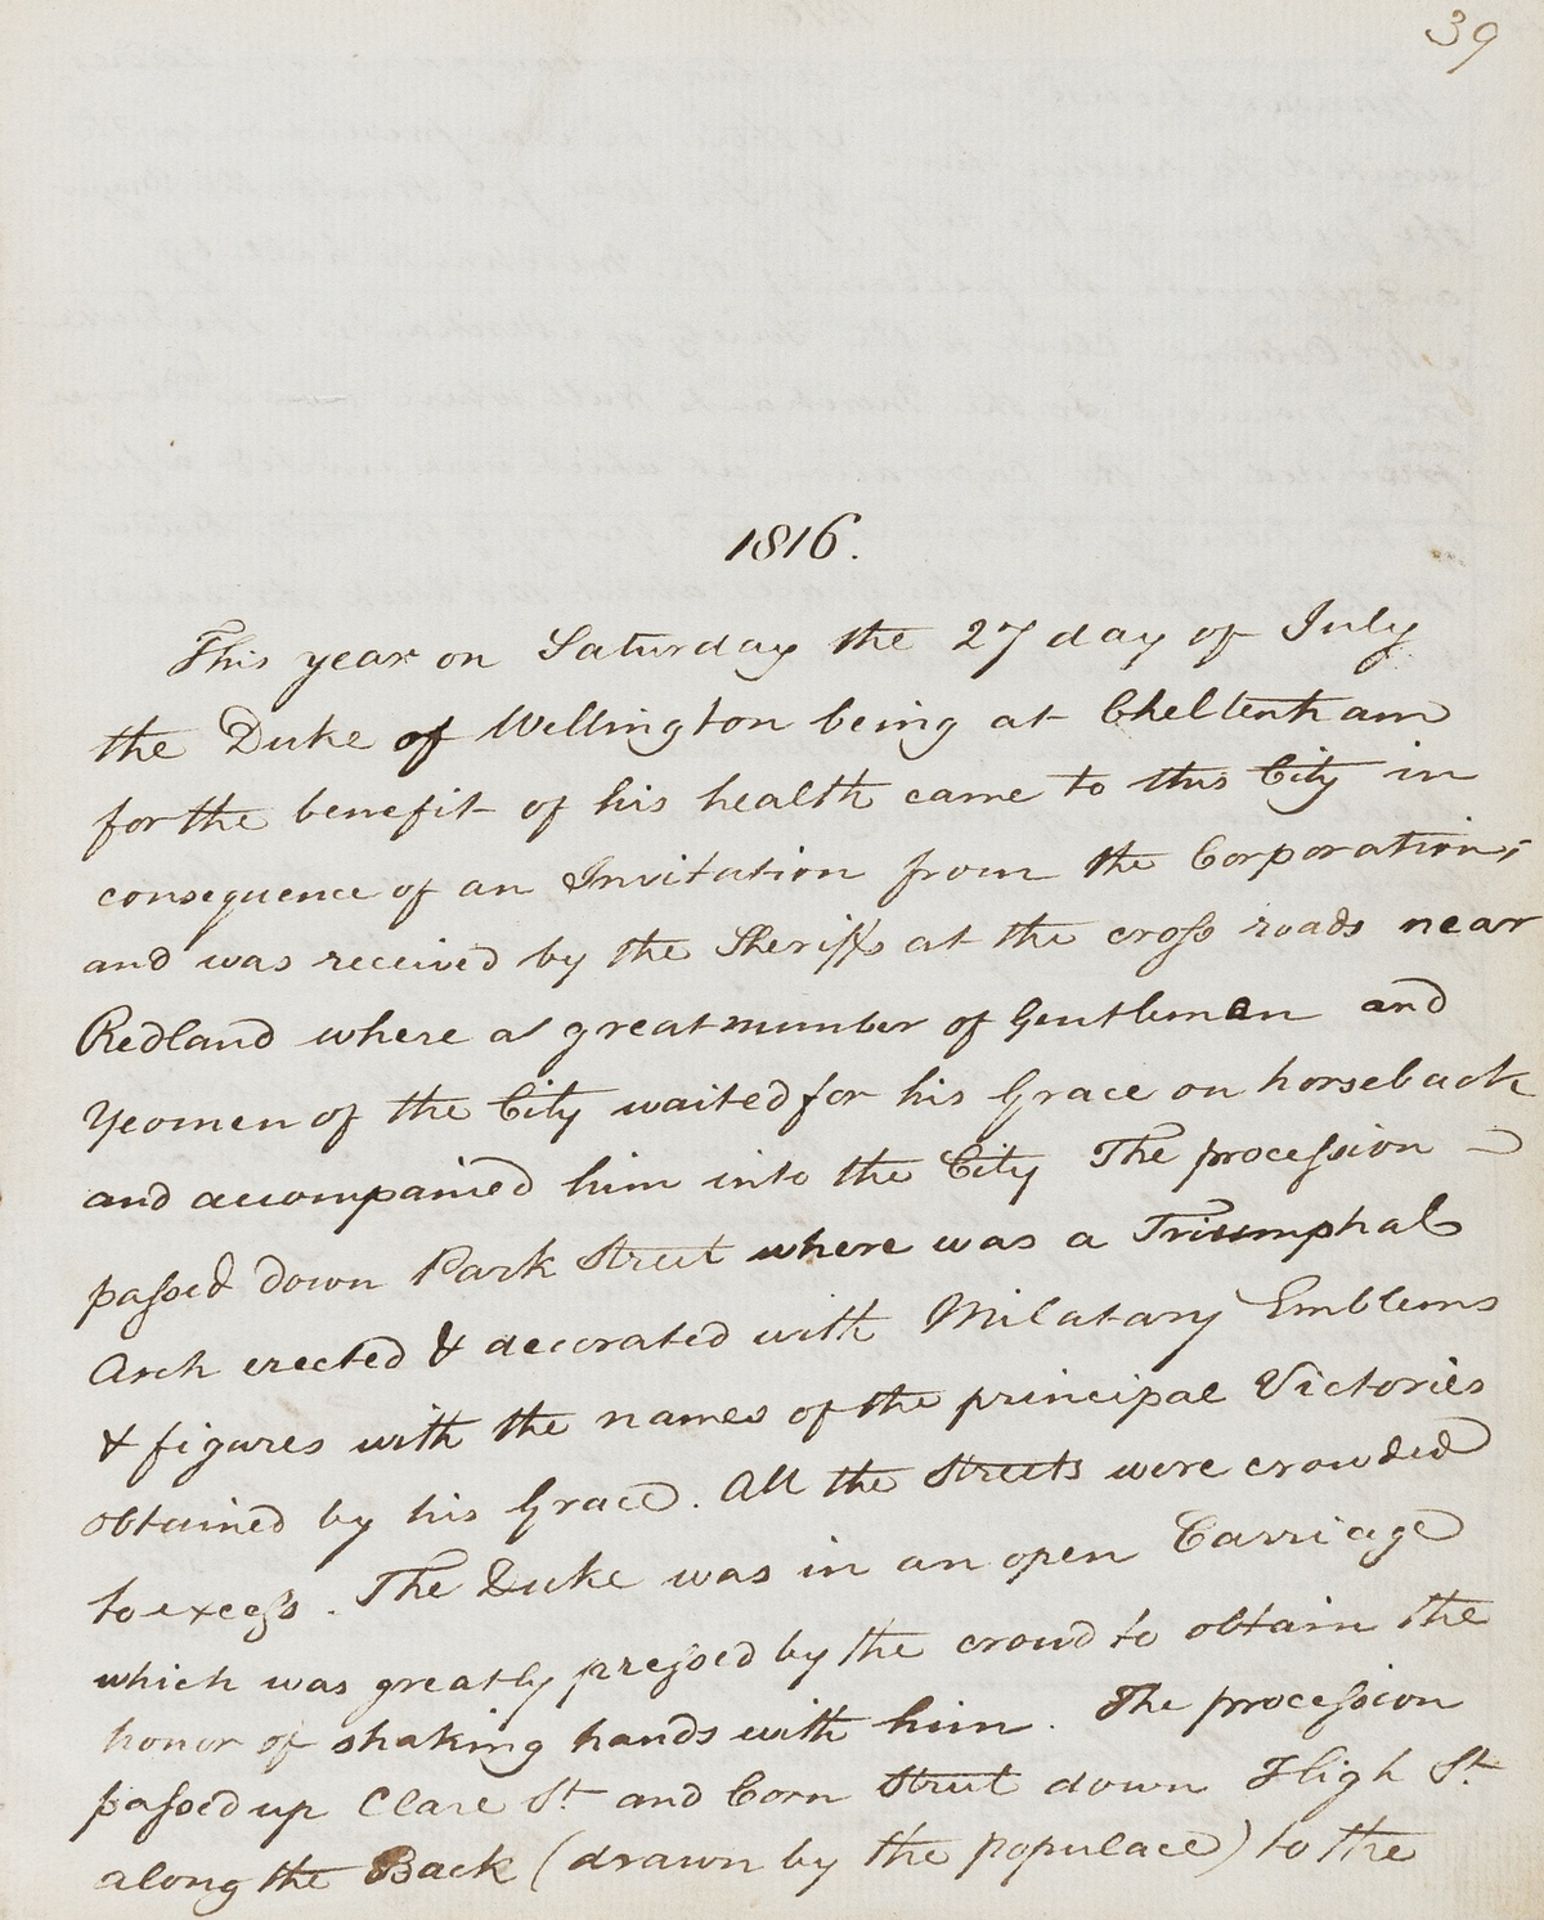 39
1816.
This year on Saturday the 27 day of July
the Duke of Wellington being at Cheltenham
for the benefit of his health came to this City in
consequence of an Invitation from the Corporation,
and was received by the Sheriffs at the croſs roads near
Redland where a great number of Gentlemen and
Yeomen of the City waited for his Grace on horseback
and accompanied him into the City The proceſsion
paſsed down Park Street where was a Triumphal
Arch erected & decorated with Milatary Emblems
& figures with the names of the principal Victories
obtained by his Grace. All the Streets were crowded
to exceſs. The Duke was in an open Carriage
which was greatly preſsed by the crowd to obtain the
honor of shaking hands with him. The proceſsion
paſsed up Clare St and Corn Street down High St
along the Back (drawn by the populace) to the